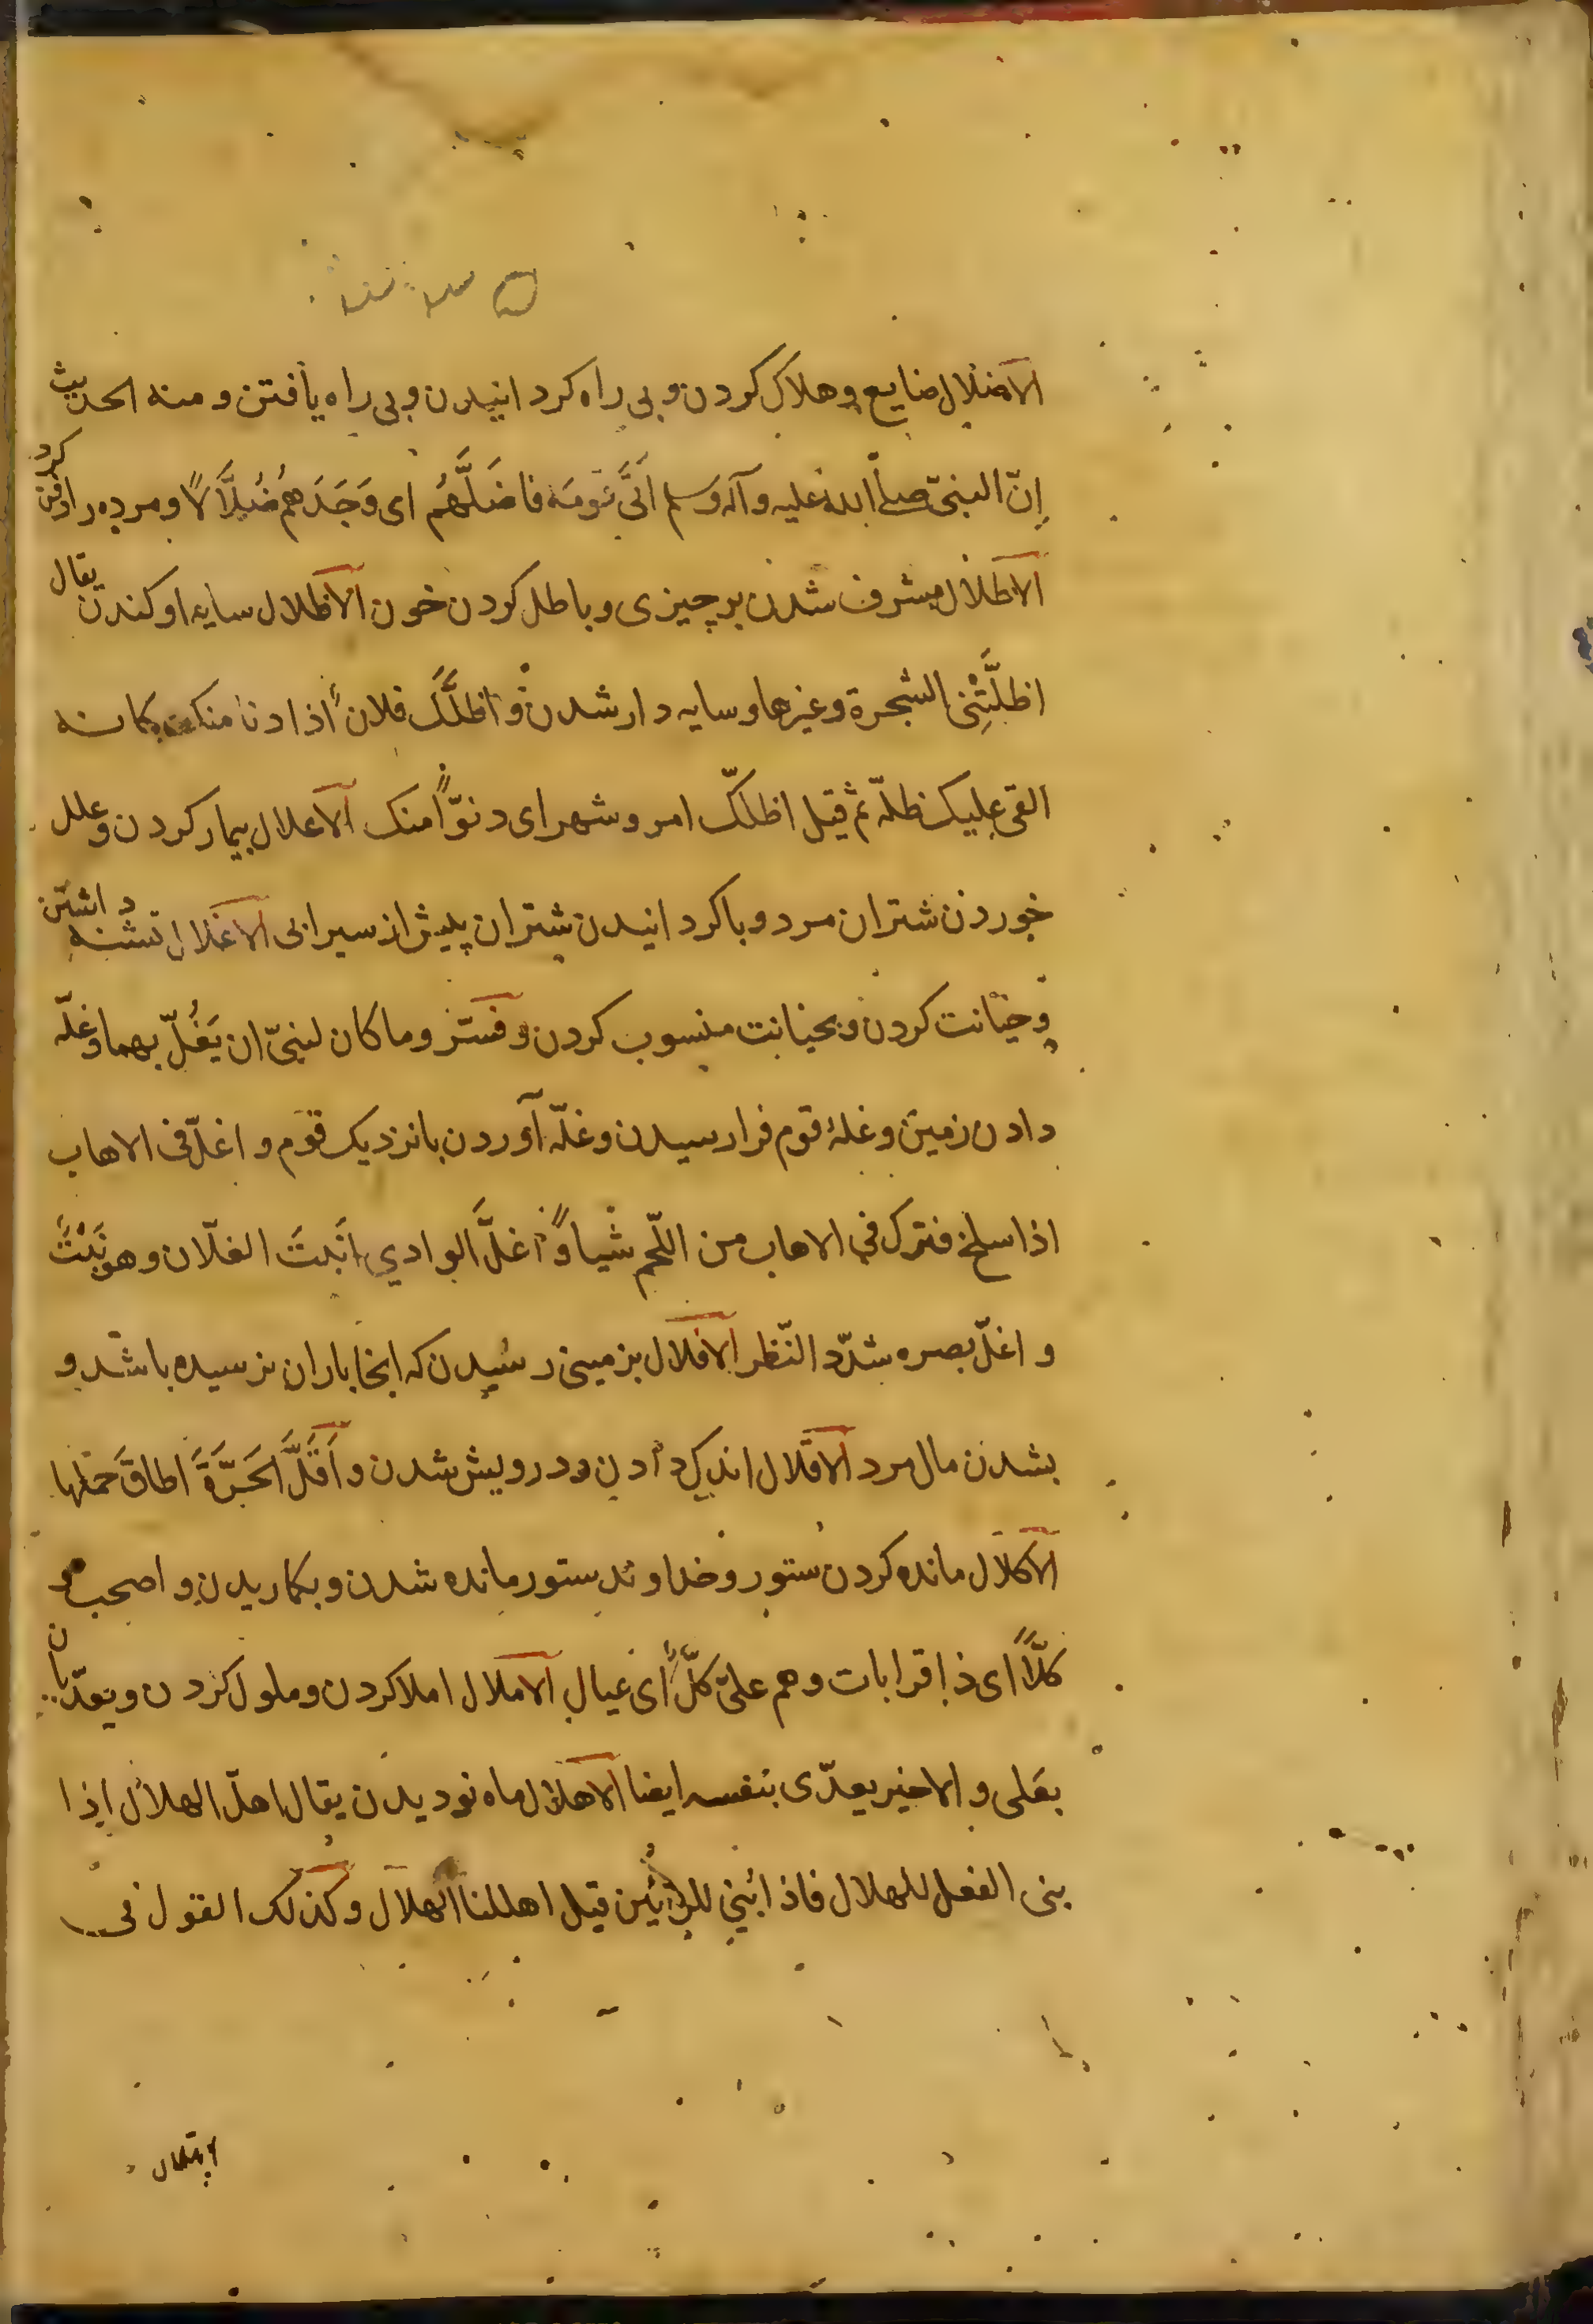 الاضلال ضایع و هلاک کردن و بی راه کردانیدن و بی راه یافتن و منه الحدیث
اِنّ النبیّ صلی الله علیه و آله و سلم اَتَی قومَه فاضَلَّهُم ای وَجَدَهُم ضُلّالاً و مرده را دفن کرد
الاطلال مشرف شدن بر چیزی و باطل کردن خون الاظلال سایه اوکندن یقال
اظلَّتْنِی الشجرة و غیرها و سایه دار شدن و اظلَّکَ فلانٌ اذا دنا منک کانه
القی علیک ظلّه ثم قیل اظلکّ امر و شهر ای دنوّاً منک الاعلال بیمار کردن و علل
خوردن شتران مرد و باکردانیدن شتران پیش از سیرابی الاغلال تشنه داشتن
و خیانت کردن و بخیانت منسوب کردن و فسّر و ما کان لنبیّ ان یَغُلّ بهما و غلّه
دادن زمین و غلهٔ قوم فرا رسیدن و غلّه آوردن بانزدیک قوم و اغلّ فی الاهاب
اذا سلخ فترک فی الاهاب من اللّحم شیاً و اغلَّ الوادي انَبتَ الغلّان و هو نَبْتٌ
و اغلّ بصره شدّد النّظر الافلال بزمینی رسیدن که انجا باران نرسیده باشد و
بشدن مال مرد الاقلال اندک دادن و درویش شدن و اَقَلَّ الجَرَّةَ اطاقَ حملها
الاکلال مانده کردن ستور و خداوند ستور مانده شدن و بکاریدن و اصحب
کلّاً ای ذا قرابات و هم علیّ کلٌّ ای عیال الاملال املا کردن و ملول کردن و یعدّیان
بعلی و الاخیر یعدّی بنفسه ایضا الاهلال ماه نو دیدن یقال اهلّ الهلال اِذا
بنی الفعل للهلال فاذا بُنِیَ للرائین قیل اهللنا الهلال و کذلک القول فی